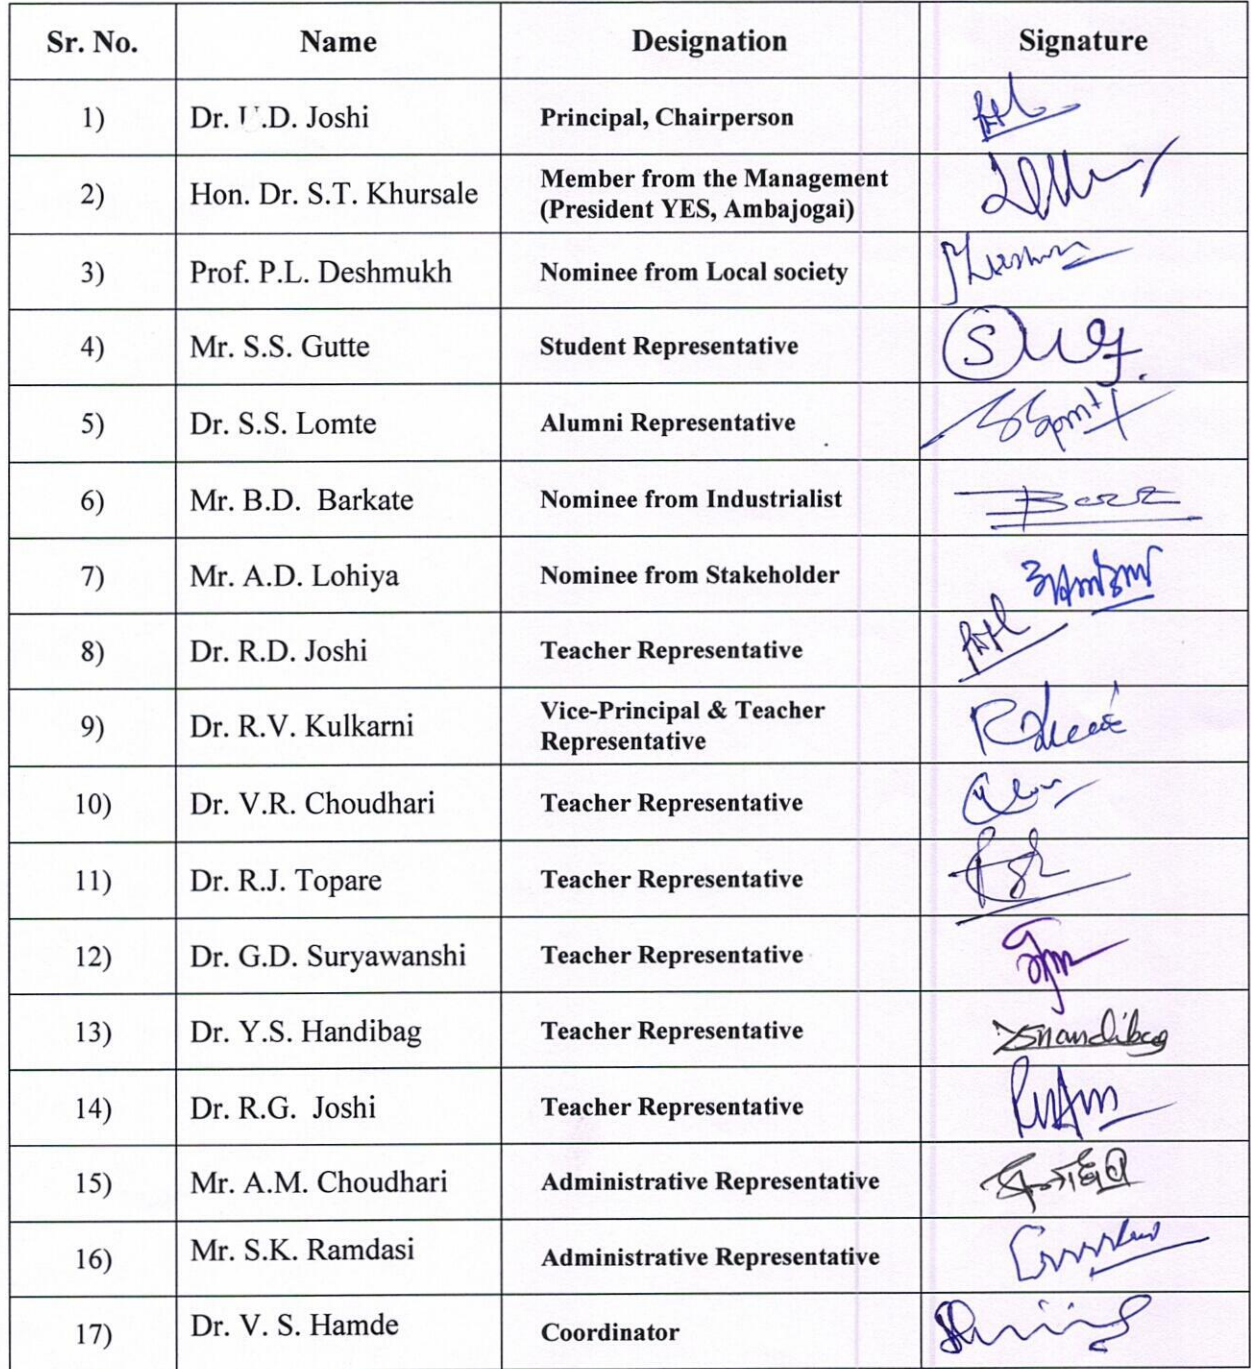 Sr. No. Name Designation Signature
1) Dr. U.D. Joshi Principal, Chairperson
2) Hon. Dr. S.T. Khursale Member from the Management
(President YES, Ambajogai)
3) Prof. P.L. Deshmukh Nominee from Local society
4) Mr. S.S. Gutte Student Representative
5) Dr. S.S. Lomte Alumni Representative
6) Mr. B.D. Barkate Nominee from Industrialist
7) Mr. A.D. Lohiya Nominee from Stakeholder
8) Dr. R.D. Joshi Teacher Representative
9) Dr. R.V. Kulkarni Vice-Principal & Teacher
Representative
10) Dr. V.R. Choudhari Teacher Representative
11) Dr. R.J. Topare Teacher Representative
12) Dr. G.D. Suryawanshi Teacher Representative
13) Dr. Y.S. Handibag Teacher Representative
14) Dr. R.G. Joshi Teacher Representative
15) Mr. A.M. Choudhari Administrative Representative
16) Mr. S.K. Ramdasi Administrative Representative
17) Dr. V. S. Hamde Coordinator